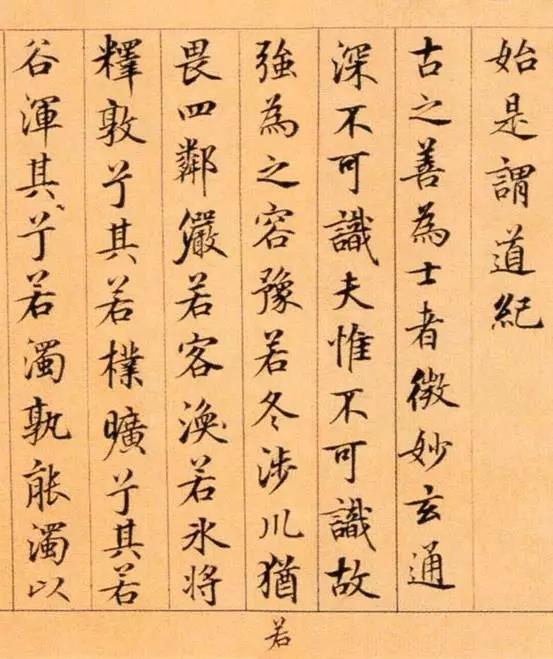 始是謂道紀
古之善為士者微妙玄通
深不可識夫惟不可識故
強為之容豫若冬涉川猶
畏四鄰儼若客渙若氷將
釋敦兮其若樸曠兮其若
谷渾其兮若濁孰能濁以
若